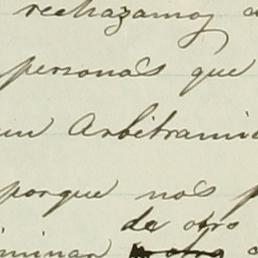 rechazamos
personas que
un Arbitramie
porque nos p
de otro
iminar